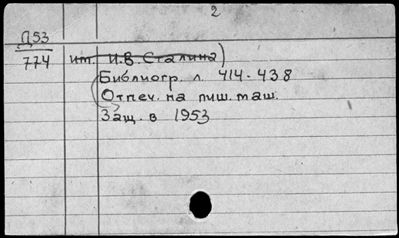 2
Д53
774
им. И.В. Сталина)
Библиогр. л. 414-438
(Отпеч. на пиш. маш.
Защ. в 1953